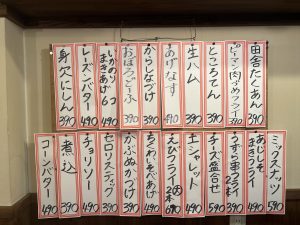 田舎たくあん 390
ピーマン肉づめフライ 490
ところてん 390
生ハム 490
あげなす 390
からしなづけ 390
おぼろどーふ 390
いかのり まきあげ 6コ 490
レーズンバター 490
身欠にしん 390
ミックスナッツ 590
あじしそ まきフライ 490
うずら串フライ 2本 390
チーズ盛合せ 590
エシャレット 390
えびフライ 2本 690
ちくわいそべあげ 490
かぶぬかづけ 390
セロリスティック 390
チョリソー 490
煮込 390
コーンバター 490